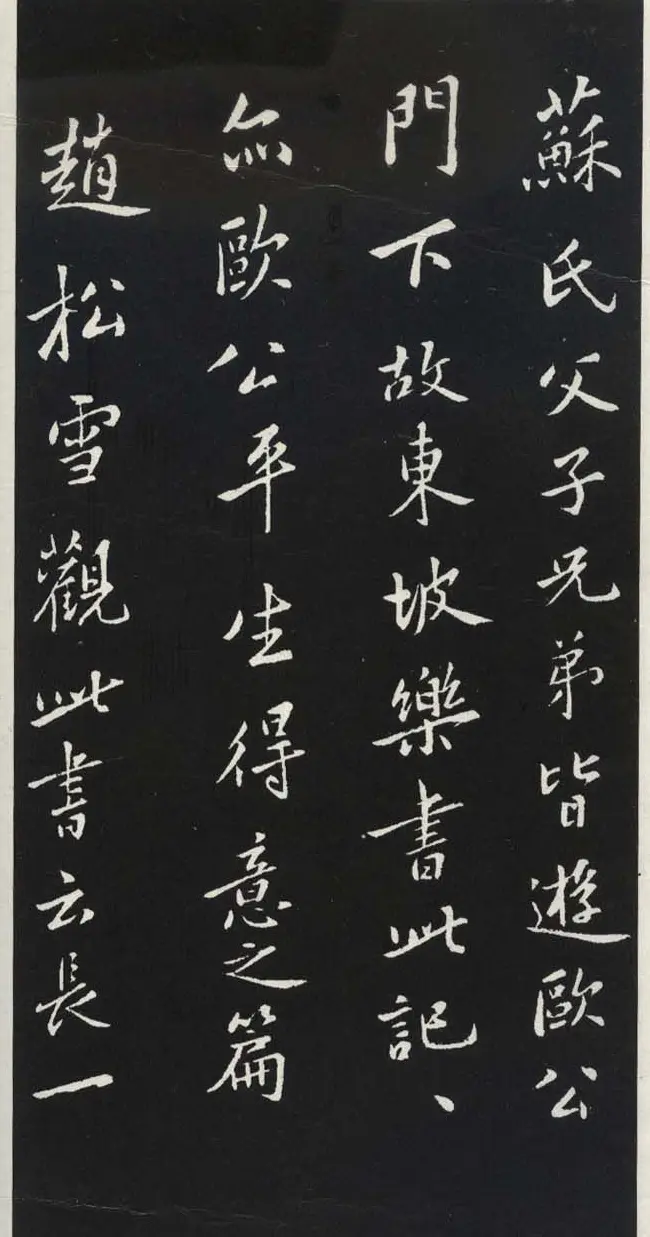 蘇氏父子兄弟皆遊歐公
門下故東坡樂書此記、
亦歐公平生得意之篇
趙松雪觀此書云長一